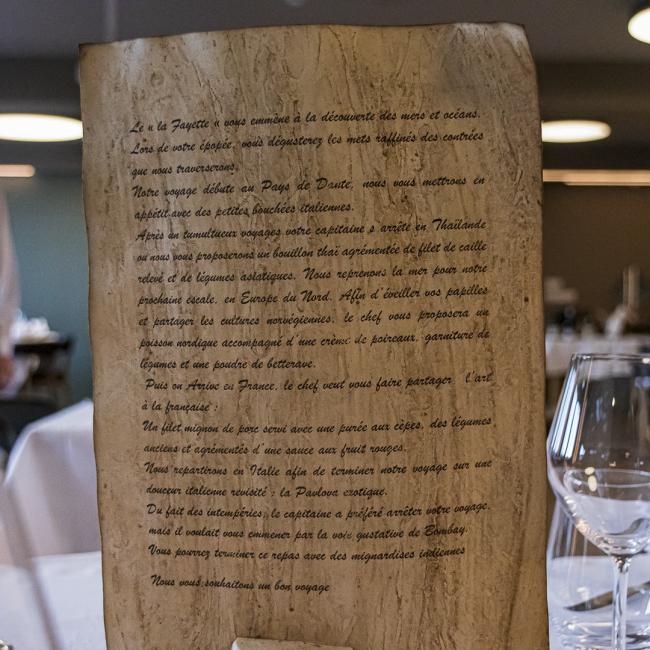 Le « la Fayette « vous emmène à la découverte des mers et océans.
Lors de votre épopée, vous dégusterez les mets raffinés des contrées
que nous traverserons.
Notre voyage débute au Pays de Dante, nous vous mettrons en
appétit avec des petites bouchées italiennes.
Après un tumultueux voyages votre capitaine s arrête en Thaïlande
ou nous vous proposerons un bouillon thaï agrémentée de filet de caille
relevé et de légumes asiatiques. Nous reprenons la mer pour notre
prochaine escale, en Europe du Nord. Afin d'éveiller vos papilles
et partager les cultures norvégiennes, le chef vous proposera un
poisson nordique accompagné d'une crème de poireaux, garniture de
légumes et une poudre de betterave.
Puis on Arrive en France, le chef veut vous faire partager l'art
à la française :
Un filet mignon de porc servi avec une purée aux cèpes, des légumes
anciens et agrémentés d'une sauce aux fruit rouges.
Nous repartirons en Italie afin de terminer notre voyage sur une
douceur italienne revisité : la Pavlova exotique.
Du fait des intempéries, le capitaine a préféré arrêter votre voyage,
mais il voulait vous emmener par la voie gustative de Bombay.
Vous pourrez terminer ce repas avec des mignardises indiennes
Nous vous souhaitons un bon voyage